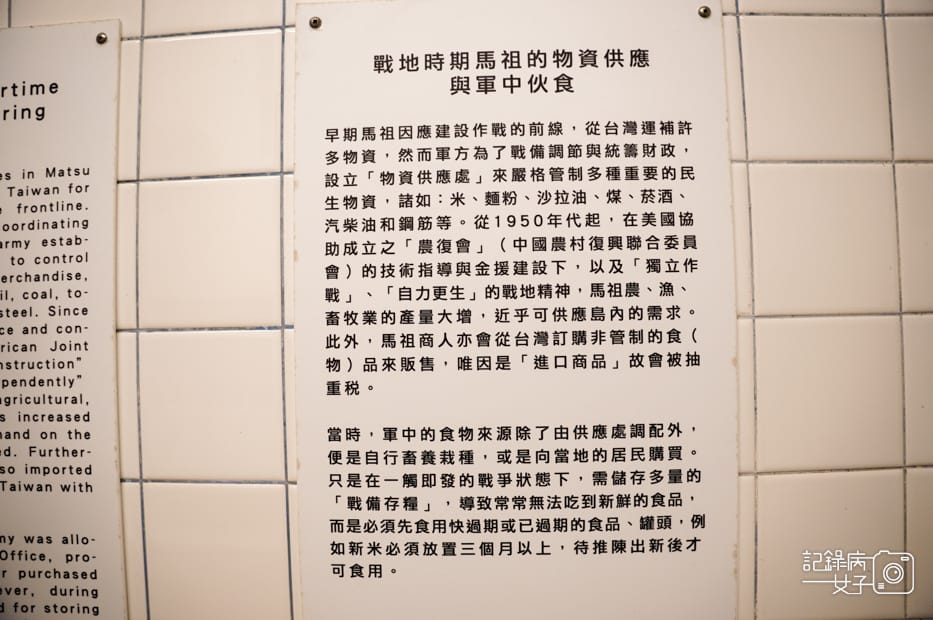 rtime
ring
es in Matsu
Taiwan for
e frontline.
oordinating
army estab-
to control
erchandise,
il, coal, to-
steel. Since
ce and con-
rican Joint
nstruction”
pendently”
agricultural,
s increased
mand on the
ed. Further-
so imported
Taiwan with
my was allo-
Office, pro-
r purchased
ever, during
d for storing
戰地時期馬祖的物資供應
與軍中伙食
早期馬祖因應建設作戰的前線，從台灣運補許
多物資，然而軍方為了戰備調節與統籌財政，
設立「物資供應處」來嚴格管制多種重要的民
生物資，諸如：米、麵粉、沙拉油、煤、菸酒、
汽柴油和鋼筋等。從1950年代起，在美國協
助成立之「農復會」（中國農村復興聯合委員
會）的技術指導與金援建設下，以及「獨立作
戰」、「自力更生」的戰地精神，馬祖農、漁、
畜牧業的產量大增，近乎可供應島內的需求。
此外，馬祖商人亦會從台灣訂購非管制的食（
物）品來販售，唯因是「進口商品」故會被抽
重稅。
當時，軍中的食物來源除了由供應處調配外，
便是自行畜養栽種，或是向當地的居民購買。
只是在一觸即發的戰爭狀態下，需儲存多量的
「戰備存糧」，導致常常無法吃到新鮮的食品，
而是必須先食用快過期或已過期的食品、罐頭，例
如新米必須放置三個月以上，待推陳出新後才
可食用。
記錄病
女子